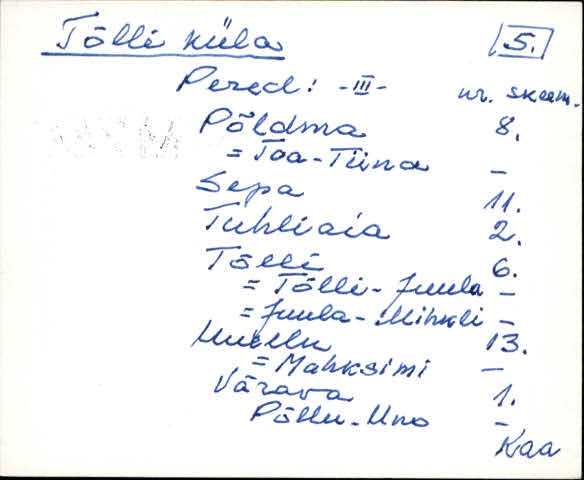 Tõlli küla 5.
Pered: -III- nr. skeem.
Põldma 8.
= Toa-Tiina -
Sepa 11.
Tuhliaia 2.
Tõlli 6.
= Tõlli-Juula -
= Juula-Mihkli -
13.
= Mahksimi -
Värava 1.
Põllu-Uno -
Kaa